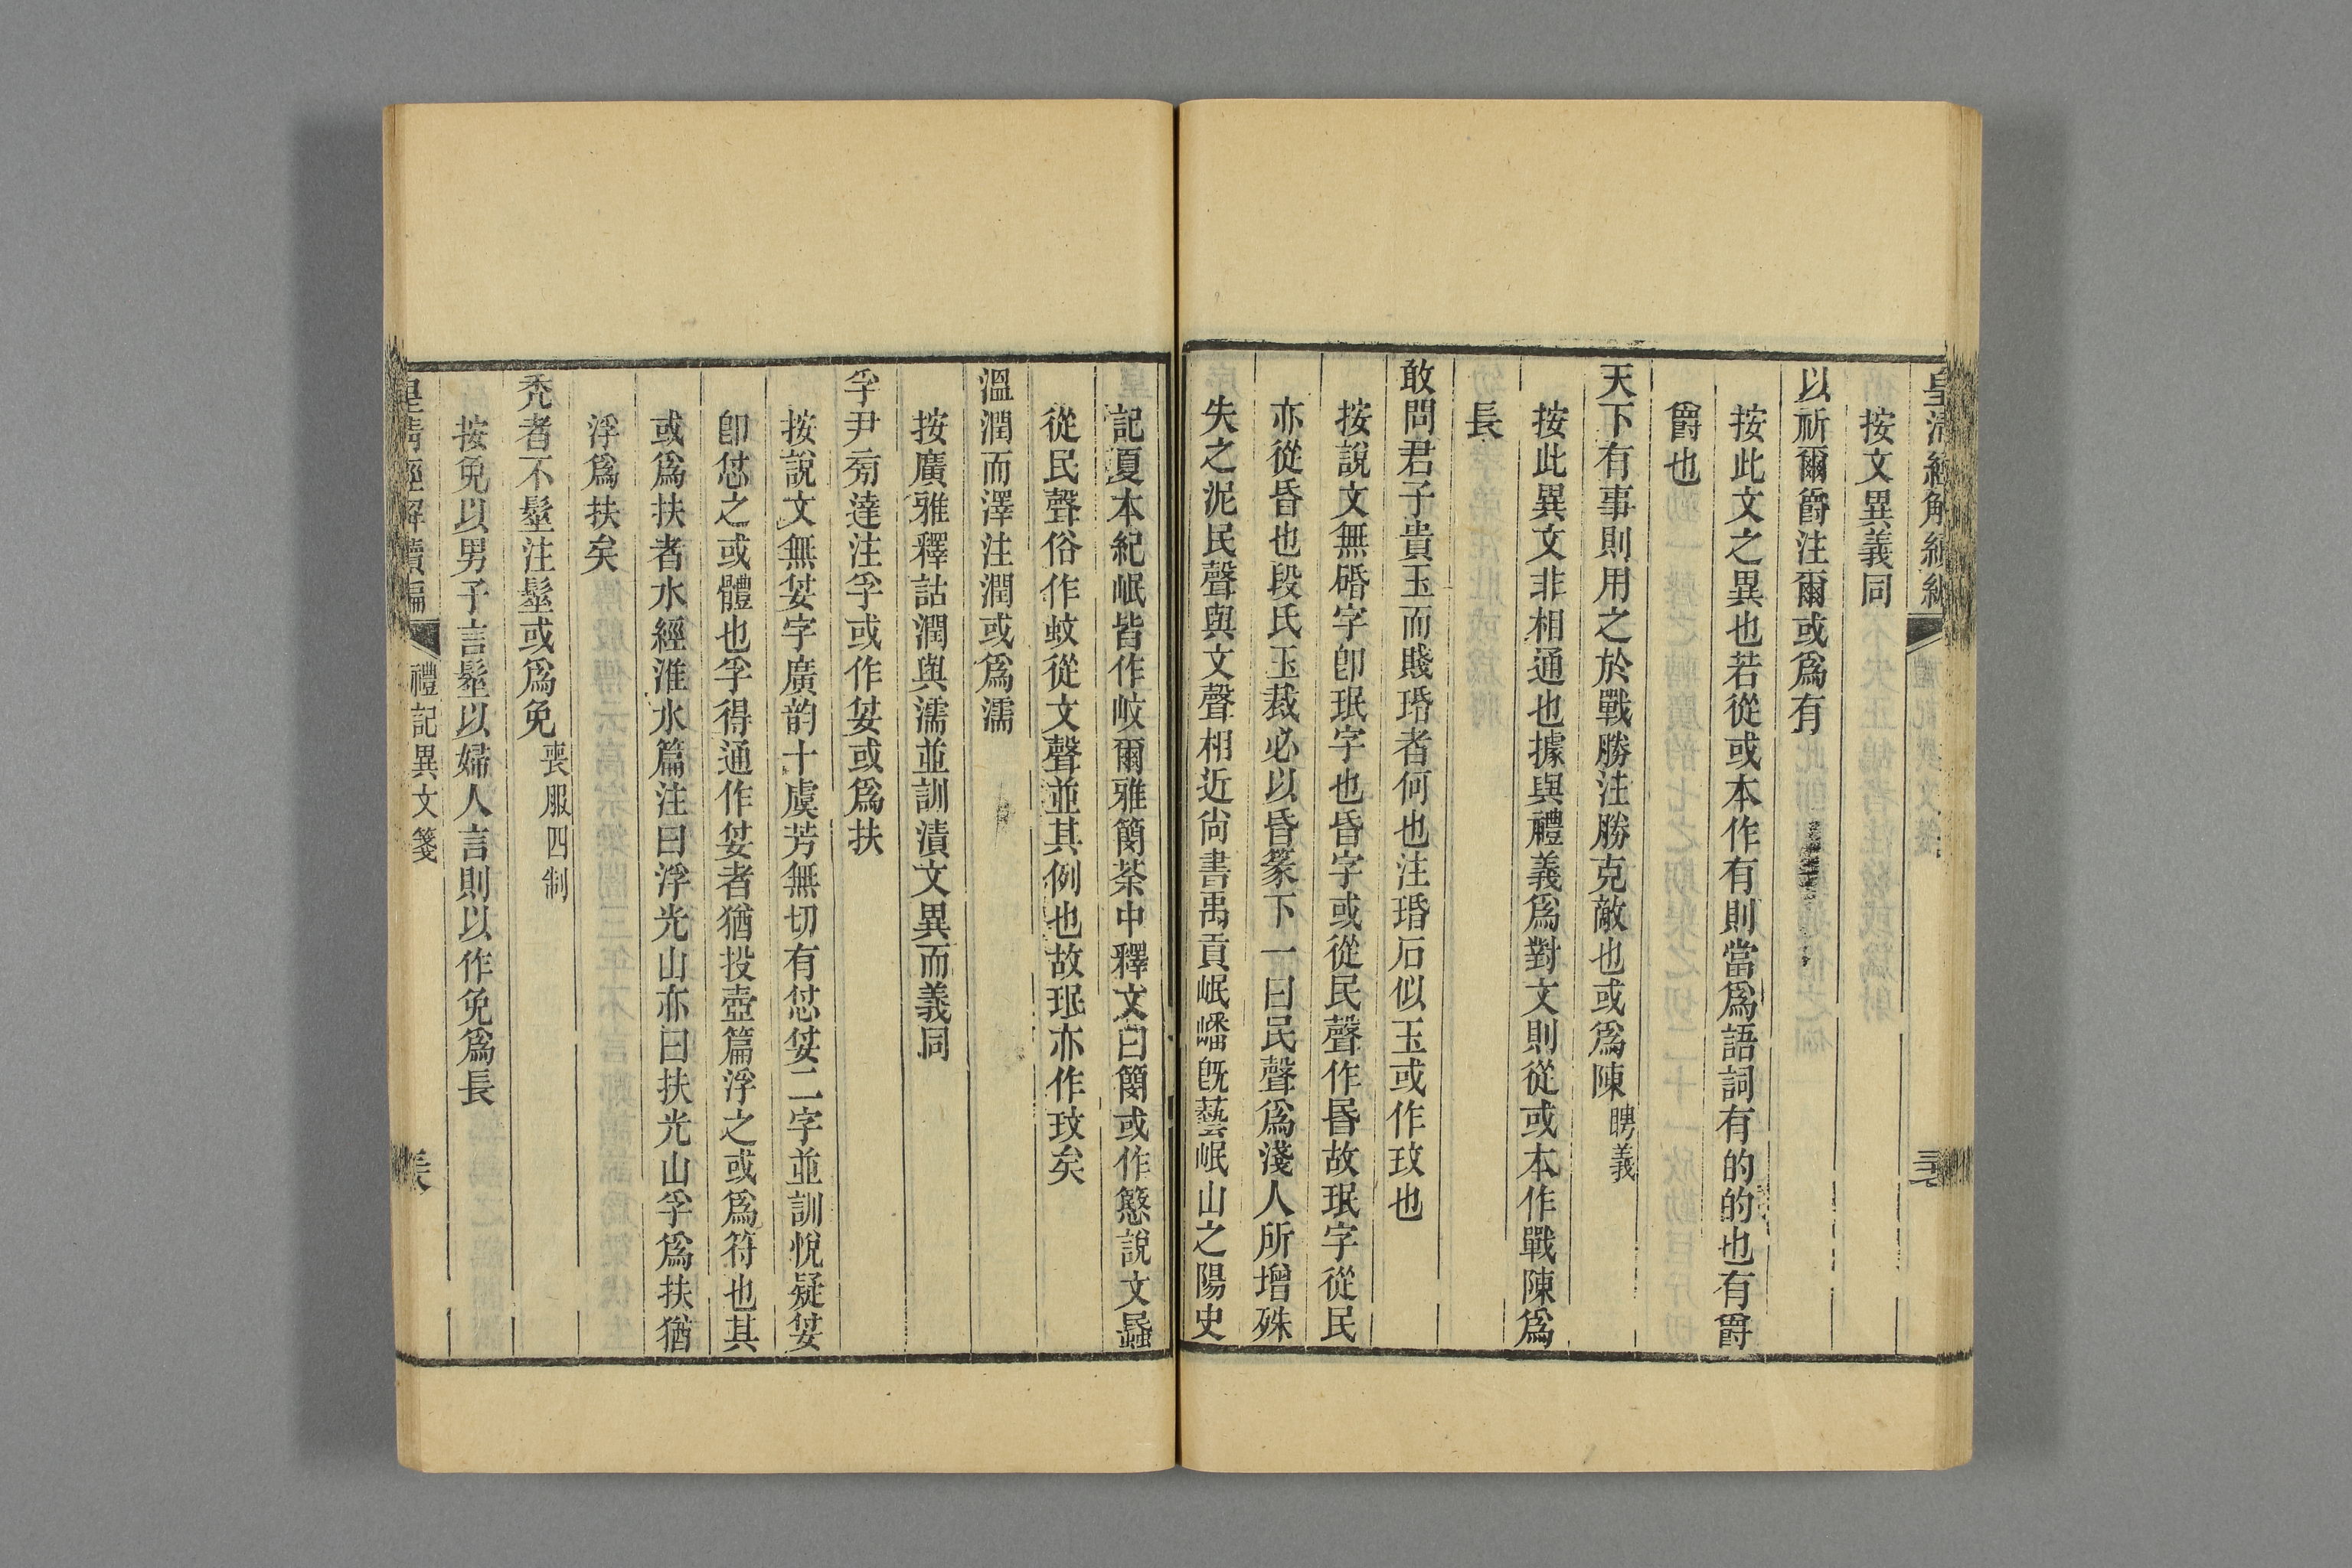 皇清經解續編 禮記異文箋
按文異義同
以祈爾爵注爾或爲有
按此文之異也若從或本作有則當爲語詞有的的也有爵
爵也
天下有事則用之於戰勝注勝克敵也或爲陳聘義
按此異文非相通也據與禮義爲對文則從或本作戰陳爲
長
敢問君子貴玉而賤碈者何也注碈石似玉或作玟也
按說文無碈字卽珉字也昏字或從民聲作昬故珉字從民
亦從昏也段氏玉裁必以昏篆下一曰民聲爲淺人所增殊
失之泥民聲與文聲相近尙書禹貢岷嶓旣藝岷山之陽史
記夏本紀岷皆作㟭爾雅簢筡中釋文曰簢或作慜說文蟁
從民聲俗作蚊從文聲並其例也故珉亦作玟矣
溫潤而澤注潤或爲濡
按廣雅釋詁潤與濡並訓漬文異而義同
孚尹㫄達注孚或作姇或爲扶
按說文無姇字廣韵十虞芳無切有怤姇二字並訓悅疑姇
卽怤之或體也孚得通作姇者猶投壺篇浮之或爲符也其
或爲扶者水經淮水篇注曰浮光山亦曰扶光山孚爲扶猶
浮爲扶矣
禿者不髽注髽或爲免喪服四制
按免以男子言髽以婦人言則以作免爲長
皇清經解續編 禮記異文箋